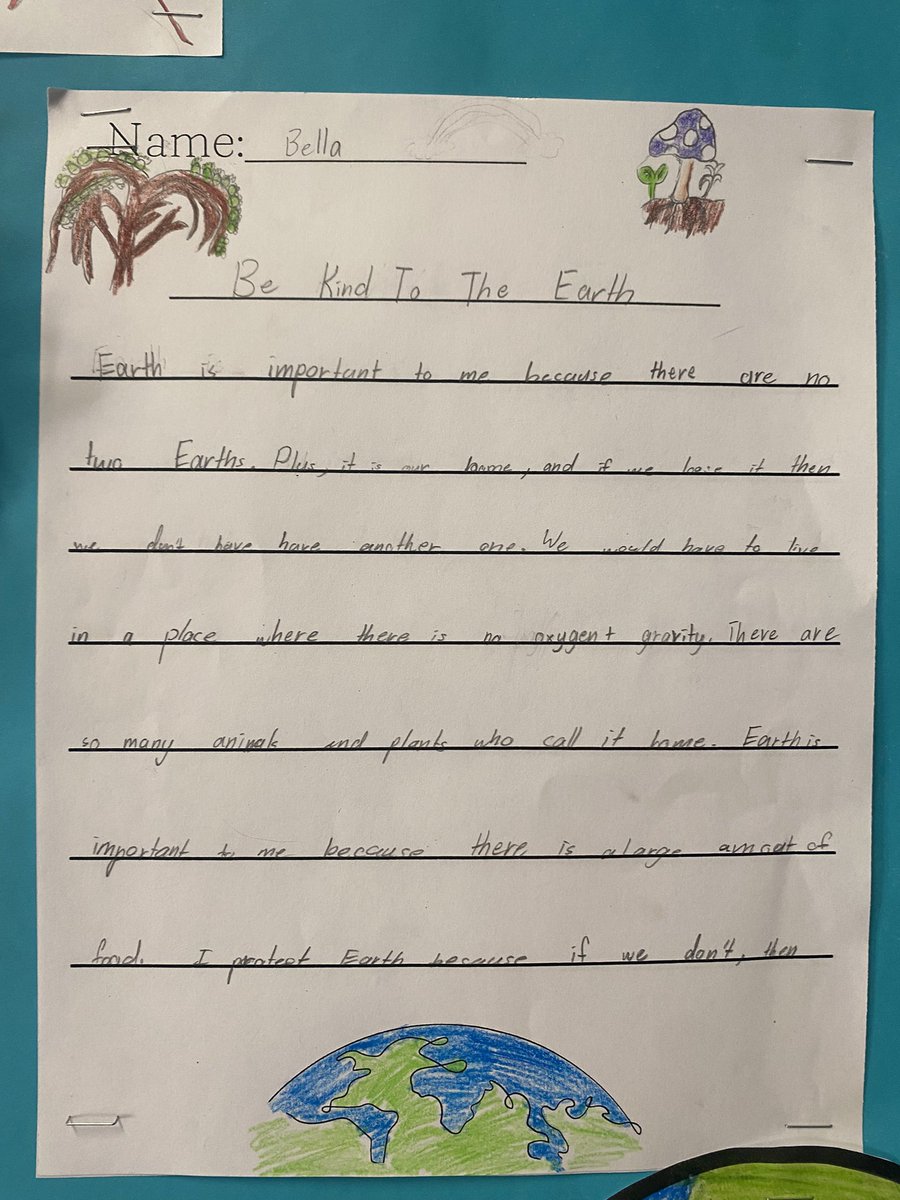 Name: Bella
Be Kind To The Earth
Earth is important to me because there are no
two Earths. Plus, it is our home, and if we lose it then
we don't have have another one. We would have to live
in a place where there is no oxygen + gravity. There are
so many animals and plants who call it home. Earth is
important to me because there is a large amoat of
food. I protect Earth because if we don't, then